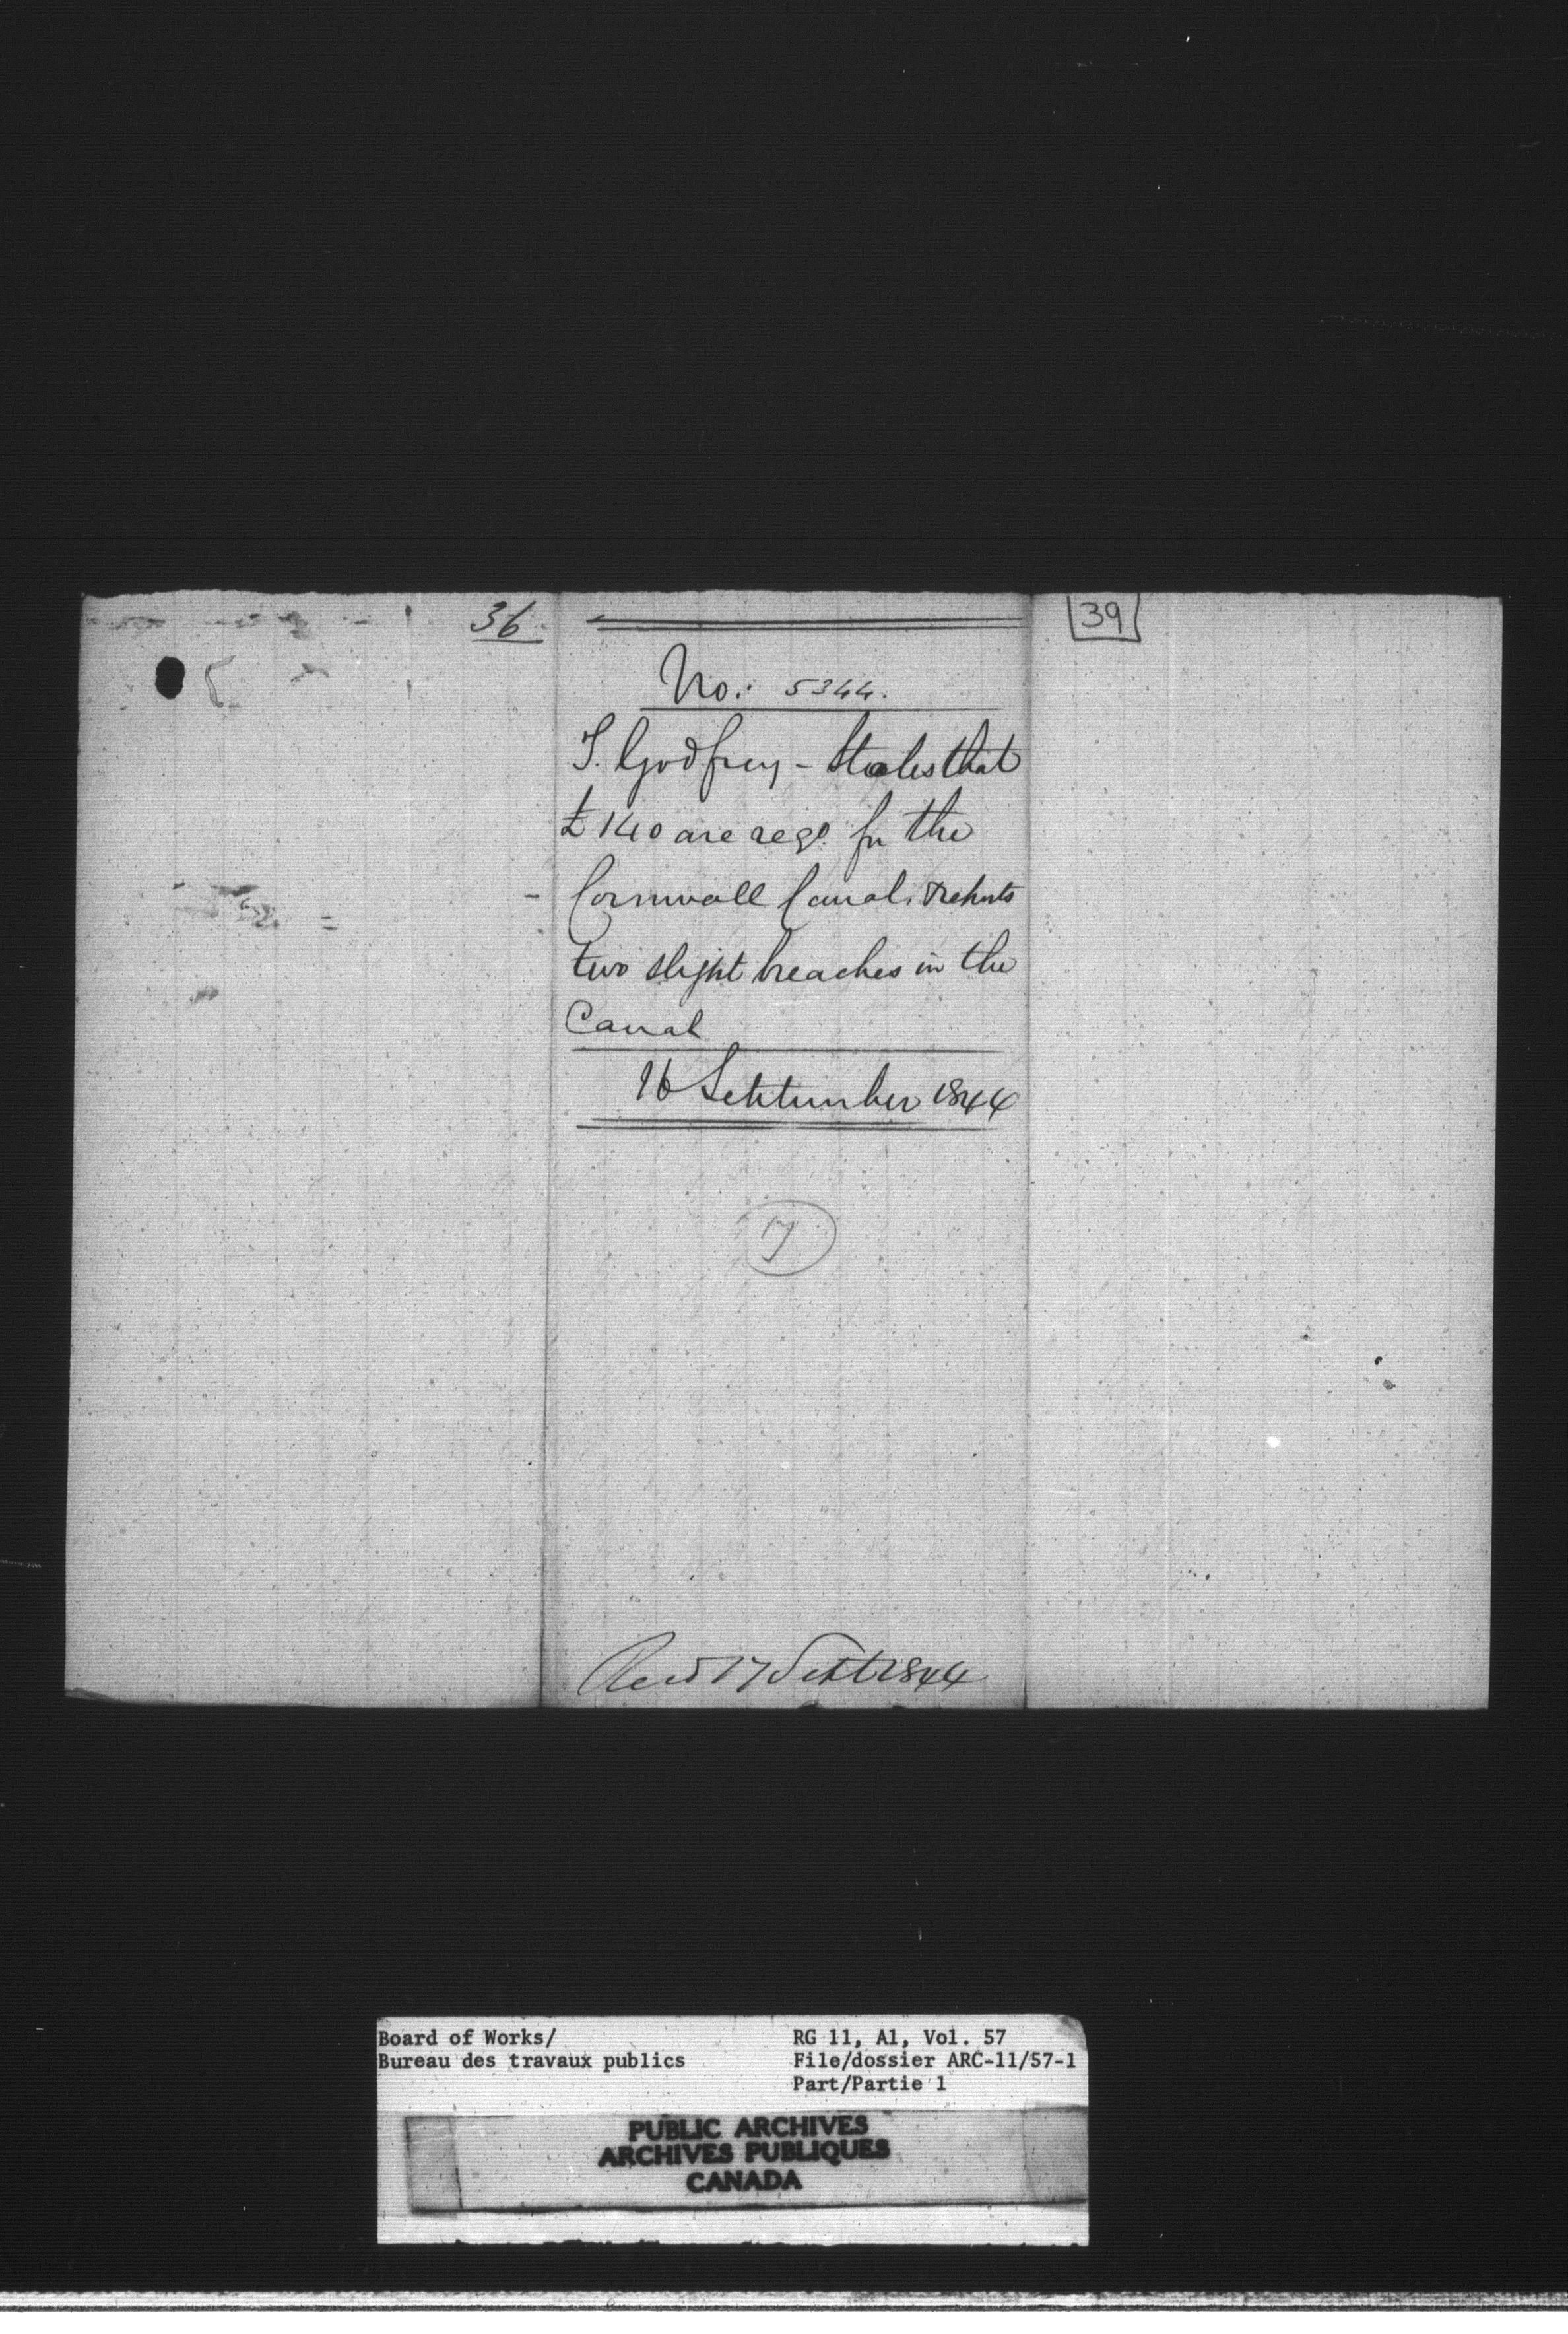 36
39
No: 5344.
S. Godfrey - States that
£140 are reqd. for the
Cornwall Canal. & reports
two slight breaches in the
Canal
16 September 1844
17
Recd 17 Sept 1844
Board of Works/
Bureau des travaux publics
RG 11, A1, Vol. 57
File/dossier ARC-11/57-1
Part/Partie 1
PUBLIC ARCHIVES
ARCHIVES PUBLIQUES
CANADA